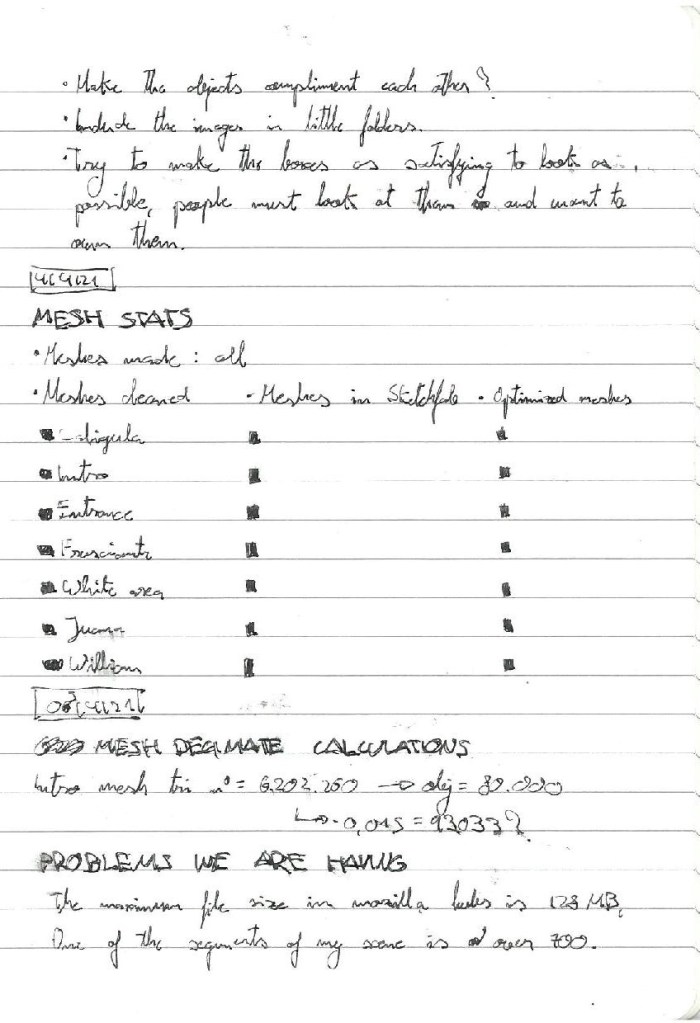 • Make the objects compliment each other?
• Include the images in little folders.
• Try to make the boxes as satisfying to look as
possible, people must look at them and want to
own them.
4/4/21
MESH STATS
• Meshes made : all
• Meshes cleaned - Meshes in Sketchfab - Optimized meshes
Caligula
Intro
Entrance
Frusciante
White area
Juana
William
MESH DECIMATE CALCULATIONS
Intro mesh tri nº = 6.202.260 → obj = 80.000
↳ · 0,015 = 93033?
PROBLEMS WE ARE HAVING
The maximum file size in mozilla hubs is 128 MB,
One of the segments of my scene is over 700.